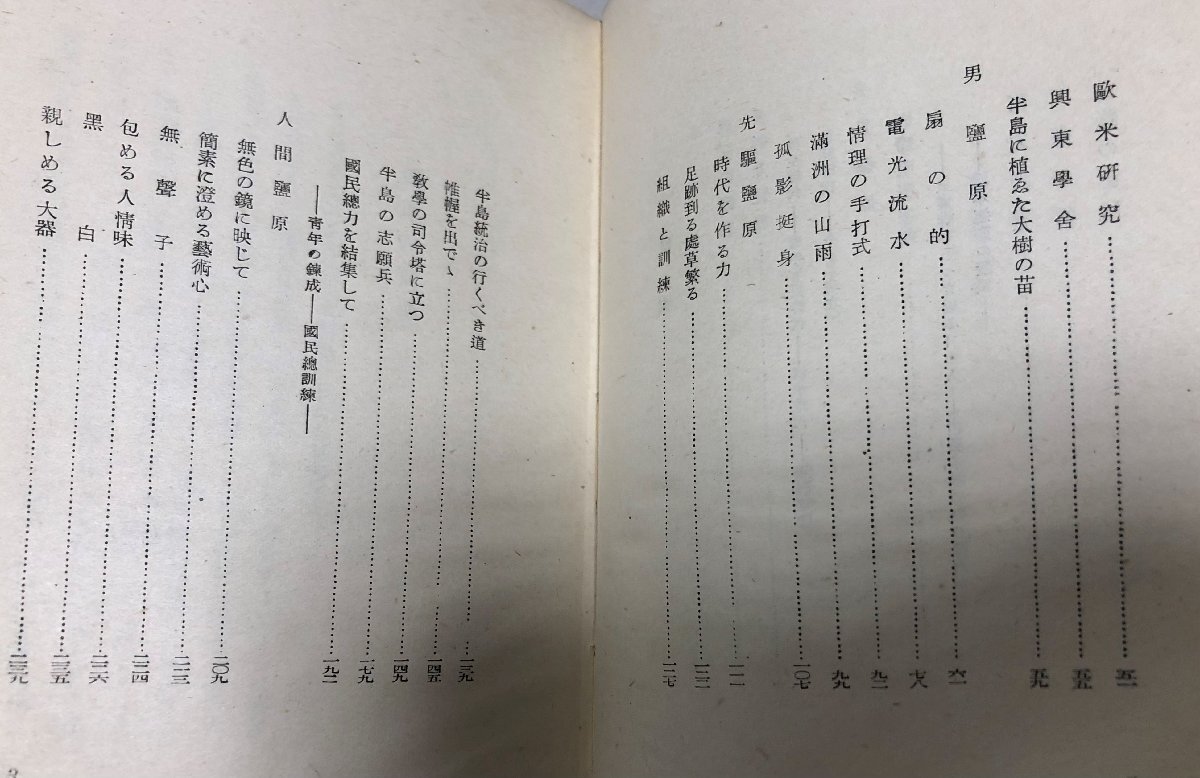 歐米研究……五一
興東學舍……五五
半島に植ゑた大樹の苗……五九
男鹽原
扇の的……六一
電光流水……七八
情理の手打式……九二
滿洲の山雨……九九
孤影挺身……一〇七
先驅鹽原
時代を作る力……一一一
足跡到る處草繁る……一二二
組織と訓練……一二七
半島統治の行くべき道……一三九
帷幄を出でゝ……一四五
敎學の司令塔に立つ……一四九
半島の志願兵……一七九
國民總力を結集して……一九二
――靑年の錬成――國民總訓練――
人間鹽原
無色の鏡に映じて……二〇九
簡素に澄める藝術心……二一三
無聲子……二二四
包める人情味……二二六
黑白……二三五
親しめる大器……二三九
3